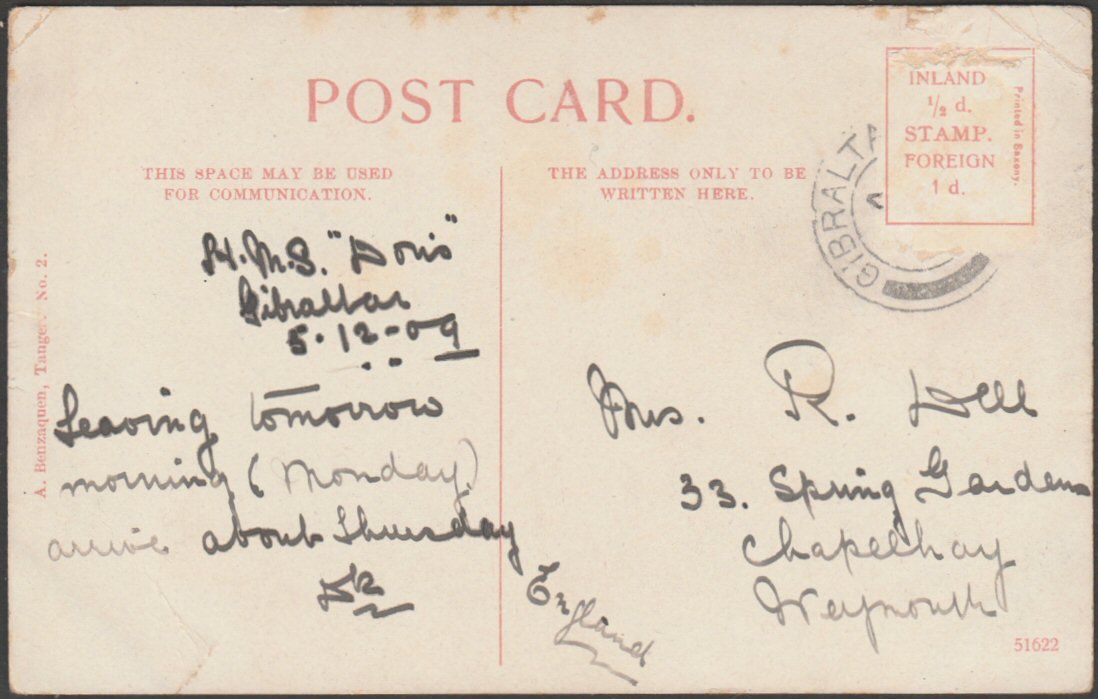 POST CARD.
THIS SPACE MAY BE USED
FOR COMMUNICATION.
THE ADDRESS ONLY TO BE
WRITTEN HERE.
INLAND
1/2 d.
STAMP.
FOREIGN
1 d.
Printed in Saxony.
GIBRALTA
A. Benzaquen, Tanger. No. 2.
H.M.S. "Doris"
Gibraltar
5-12-09
Leaving tomorrow
morning (Monday)
arrive about Thursday
Mrs. R. Dell
33. Spring Gardens
Chapelhay
Weymouth
England
51622